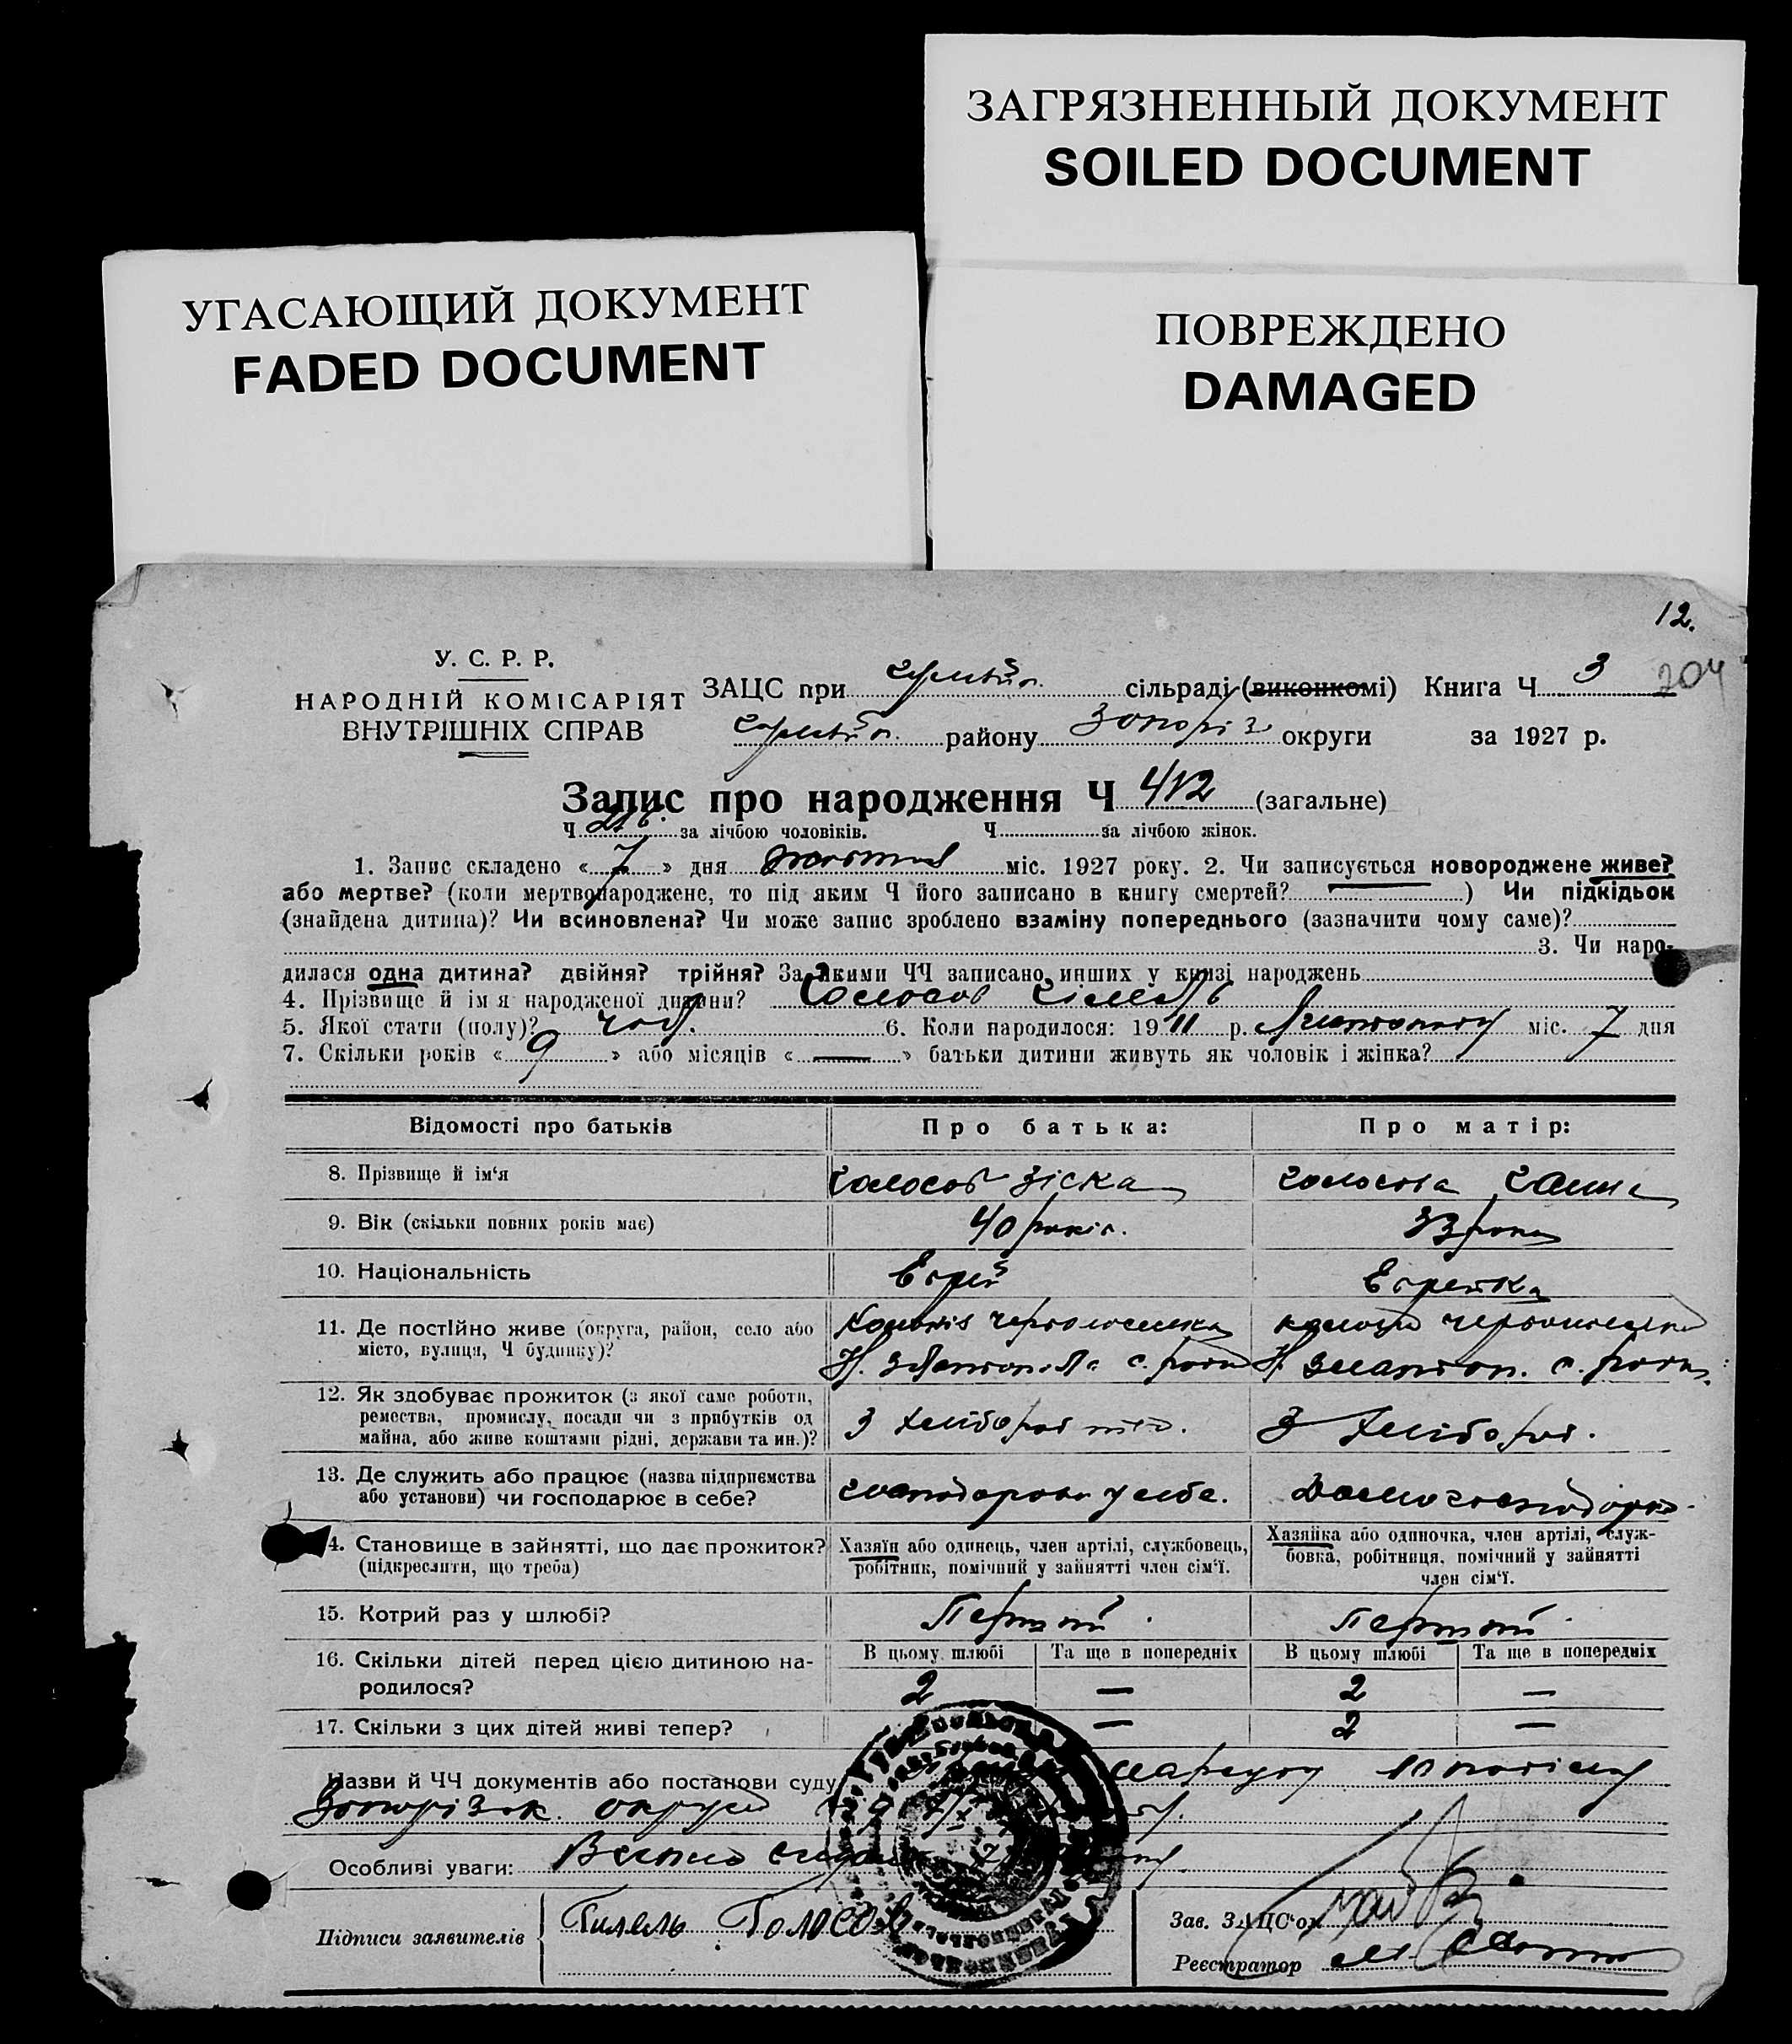 ЗАГРЯЗНЕННЫЙ ДОКУМЕНТ
SOILED DOCUMENT
УГАСАЮЩИЙ ДОКУМЕНТ
FADED DOCUMENT
ПОВРЕЖДЕНО
DAMAGED
12.
204
У. С. Р. Р.
НАРОДНІЙ КОМІСАРІЯТ
ВНУТРІШНІХ СПРАВ
ЗАЦС при сільраді (виконкомі) Книга Ч 3
району Запоріз округи за 1927 р.
Запис про народження Ч 412 (загальне)
Ч 216. за лічбою чоловіків. Ч за лічбою жінок.
1. Запис складено « 7 » дня жовтня міс. 1927 року. 2. Чи записується новороджене живе?
або мертве? (коли мертвонароджене, то під яким Ч його записано в книгу смертей? ) Чи підкідьок
(знайдена дитина)? Чи всиновлена? Чи може запис зроблено взаміну попереднього (зазначити чому саме)?
3. Чи наро-
дилася одна дитина? двійня? трійня? За якими ЧЧ записано инших у книзі народжень
4. Прізвище й ім'я народженої дитини? Голосов
5. Якої стати (полу)? чол. 6. Коли народилося: 19 11 р. Листопаду міс. 7 дня
7. Скільки років « 9 » або місяців « — » батьки дитини живуть як чоловік і жінка?
Відомості про батьків
Про батька:
Про матір:
8. Прізвище й ім'я
Голосов Зіска
Голосова
9. Вік (скільки повних років має)
40 років.
33 роки
10. Національність
Єврей
Єврейка
11. Де постійно живе (округа, район, село або
місто, вулиця, Ч будинку)?
Н. Златополь с. ради
Н. Златоп. с. ради.
12. Як здобуває прожиток (з якої саме роботи,
ремества, промислу, посади чи з прибутків од
майна, або живе коштами рідні, держави та ин.)?
З хлібороб
З хлібороб.
13. Де служить або працює (назва підприємства
або установи) чи господарює в себе?
господарює у себе.
Домогосподарка
14. Становище в зайнятті, що дає прожиток?
(підкреслити, що треба)
Хазяїн або одинець, член артілі, службовець,
робітник, помічний у зайнятті член сім'ї.
Хазяйка або одиночка, член артілі, служ-
бовка, робітниця, помічний у зайнятті
член сім'ї.
15. Котрий раз у шлюбі?
Перший.
Перший.
16. Скільки дітей перед цією дитиною на-
родилося?
В цьому шлюбі
Та ще в попередніх
В цьому шлюбі
Та ще в попередніх
2 — 2 —
17. Скільки з цих дітей живі тепер?
— 2 —
Назви й ЧЧ документів або постанови суду
Запорізьк. округи
Особливі уваги:
Підписи заявителів
Гилель Голосов
Зав. ЗАЦС'ом
Реєстратор